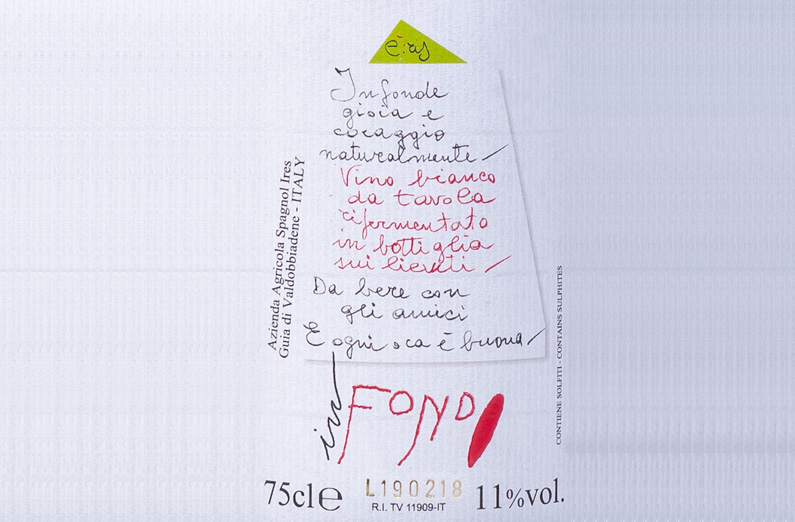 è:rs
Infonde
gioia e
coraggio
naturalmente/
Vino bianco
da tavola
rifermentato
in bottiglia
sui lieviti/
Da bere con
gli amici
E ogni oca è buona/
in FONDO
Azienda Agricola Spagnol Ires
Guia di Valdobbiadene - ITALY
CONTIENE SOLFITI - CONTAINS SULPHITES
75cl e
L190218
R.I. TV 11909-IT
11%vol.